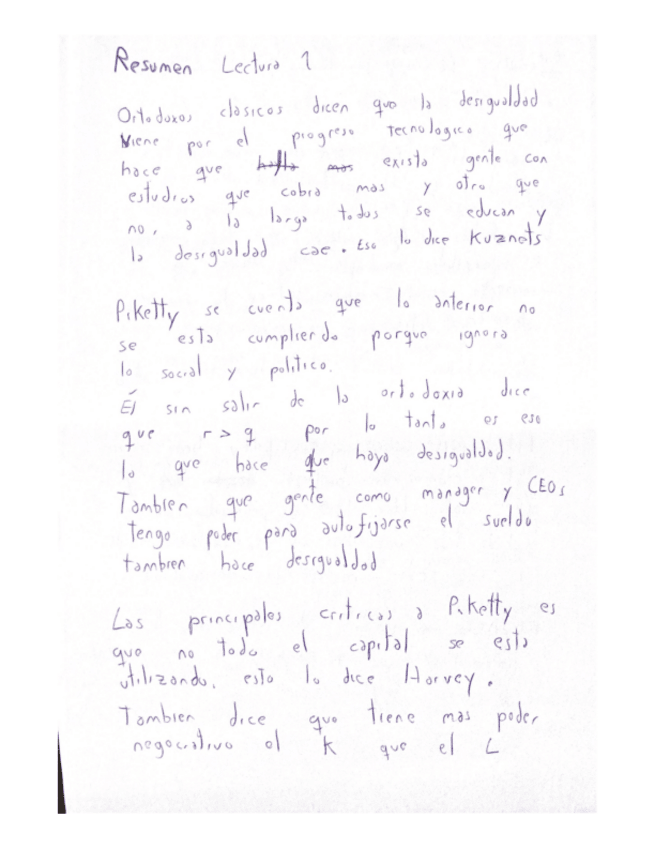 Resumen Lectura 1
Ortodoxos clasicos dicen que la desigualdad
viene por el progreso tecnologico que
hace que halla mas exista gente con
estudios que cobra mas y otro que
no, a la larga todos se educan y
la desigualdad cae. Eso lo dice Kuznets
Piketty se cuenta que lo anterior no
se esta cumpliendo porque ignora
lo social y politico.
Él sin salir de la ortodoxia dice
que r > g por lo tanto es eso
lo que hace que haya desigualdad.
Tambien que gente como manager y CEOs
tengo poder para autofijarse el sueldo
tambien hace desigualdad
Las principales criticas a Piketty es
que no todo el capital se esta
utilizando, esto lo dice Harvey.
Tambien dice que tiene mas poder
negociativo el K que el L